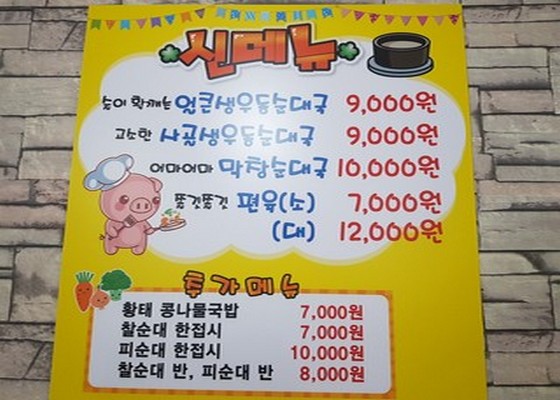 신메뉴
속이 확깨는 얼큰생우동순대국 9,000원
고소한 사골생우동순대국 9,000원
어마어마 막창순대국 10,000원
쫄깃쫄깃 편육(소) 7,000원
(대) 12,000원
추가메뉴
황태 콩나물국밥 7,000원
찰순대 한접시 7,000원
피순대 한접시 10,000원
찰순대 반, 피순대 반 8,000원